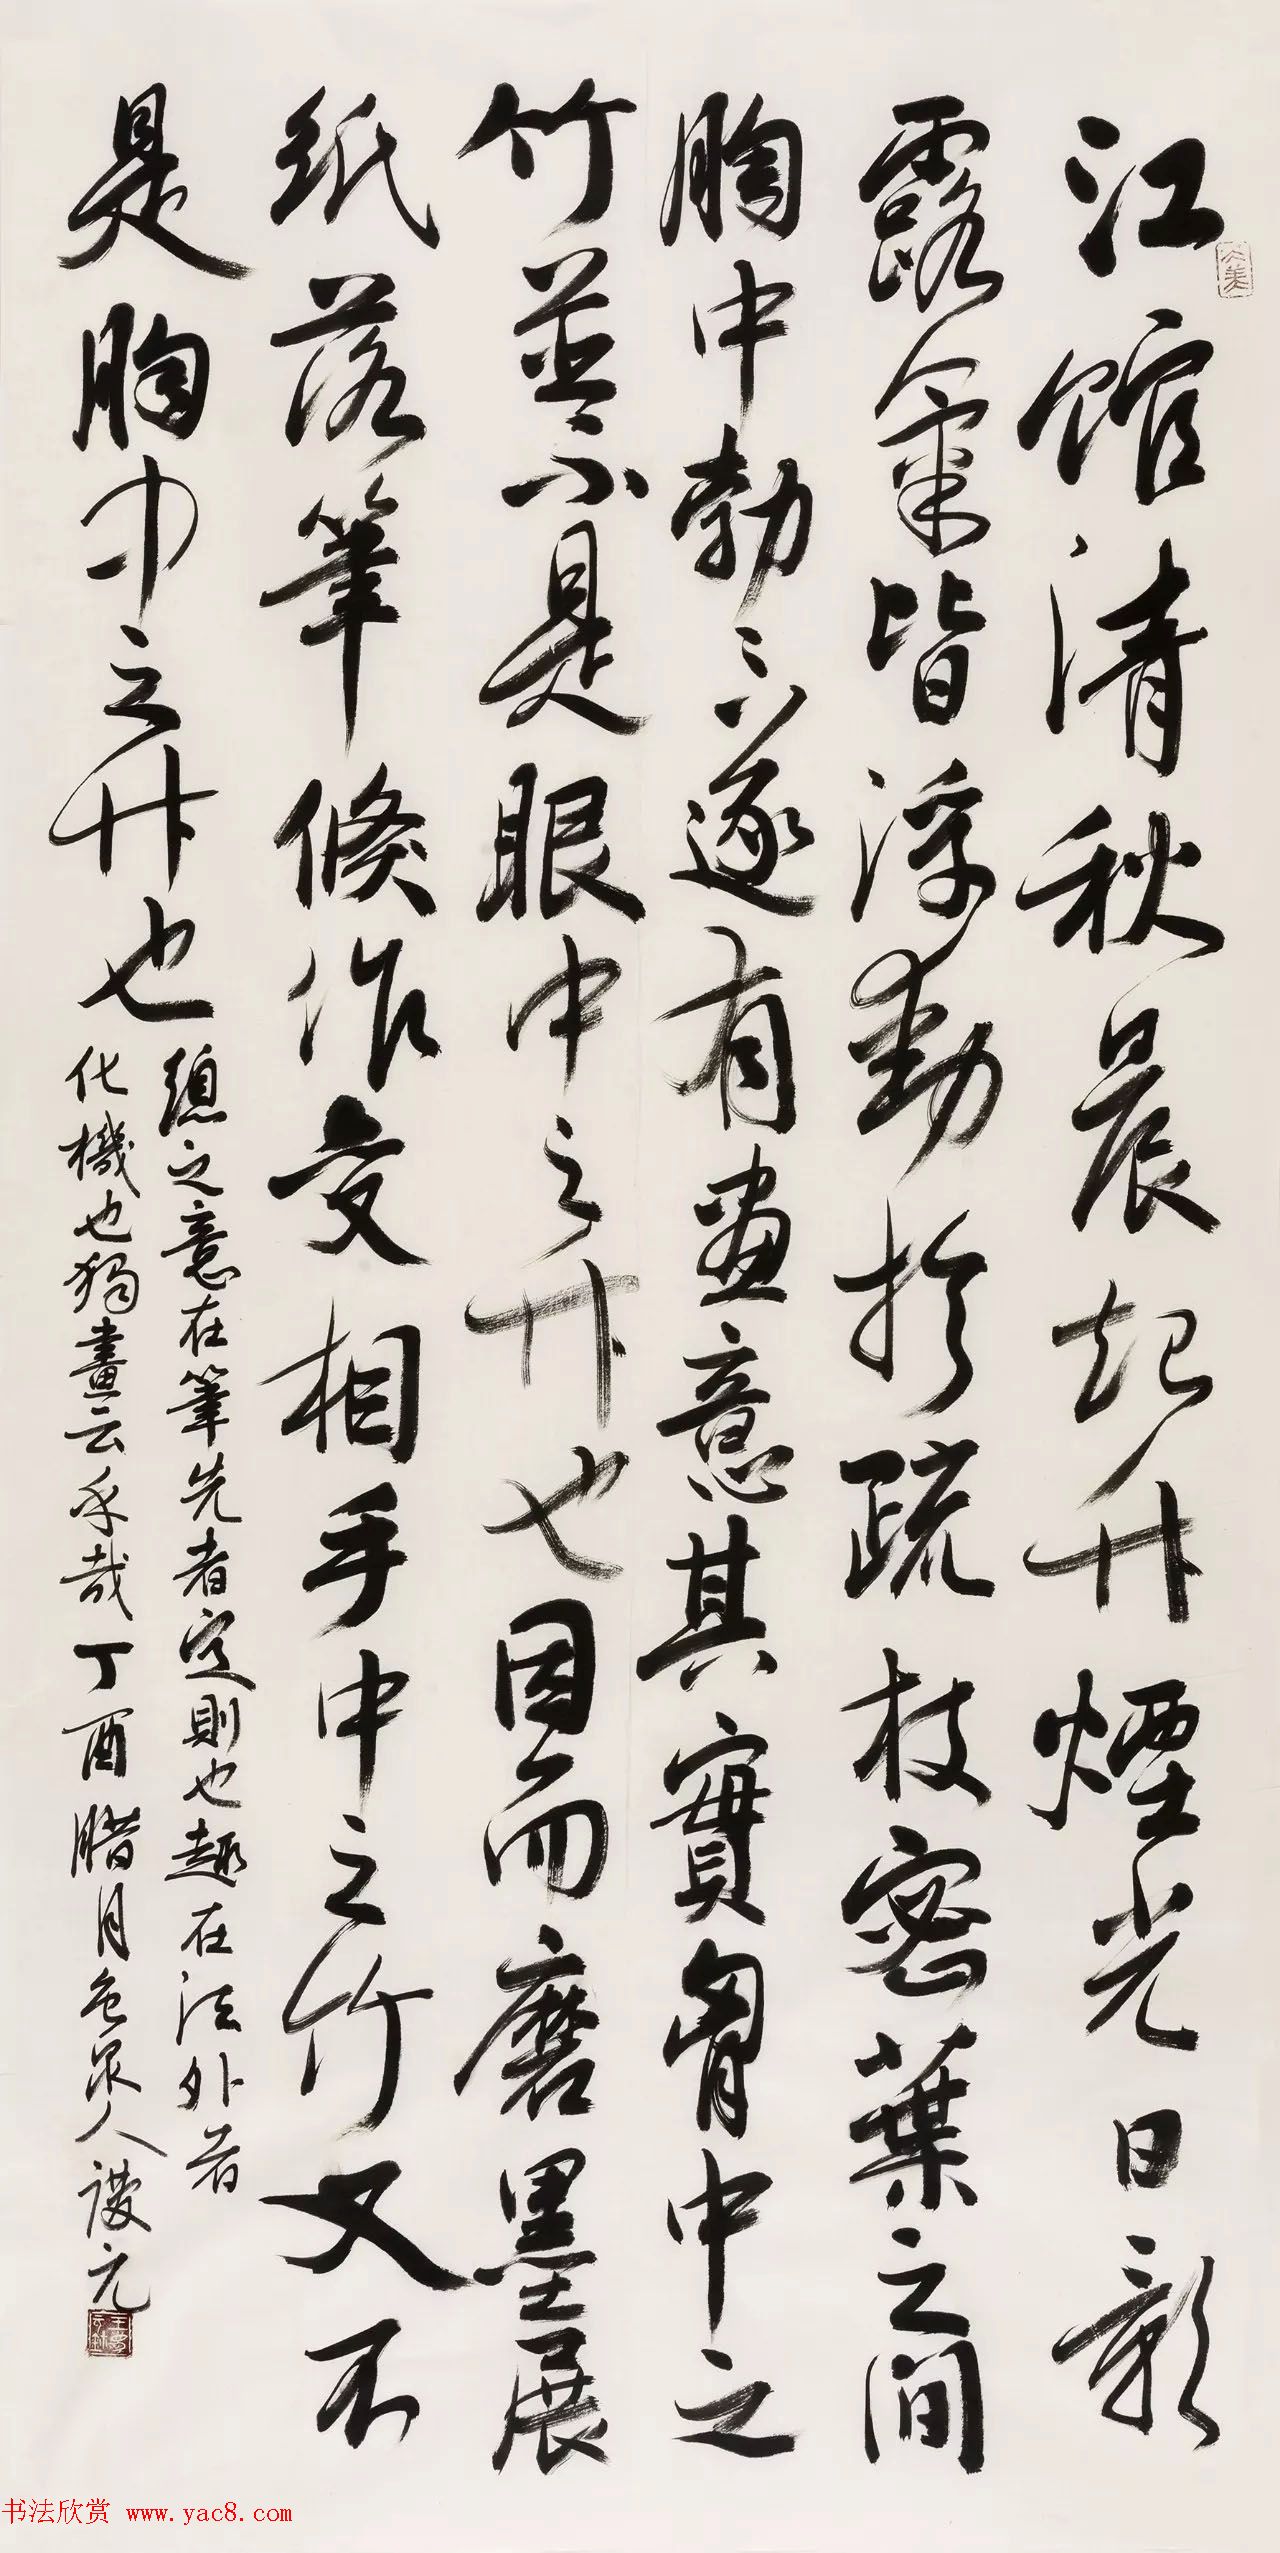 江館清秋晨起竹煙光日影
露氣皆浮動於疏枝密葉之間
胸中勃〻遂有畫意其實胷中之
竹並不是眼中之竹也因而磨墨展
紙落筆倏作變相手中之竹又不
是胸中之竹也
總之意在筆先者定則也趣在法外者
化機也獨畫云乎哉丁酉腊月
书法欣赏 www.yac8.com